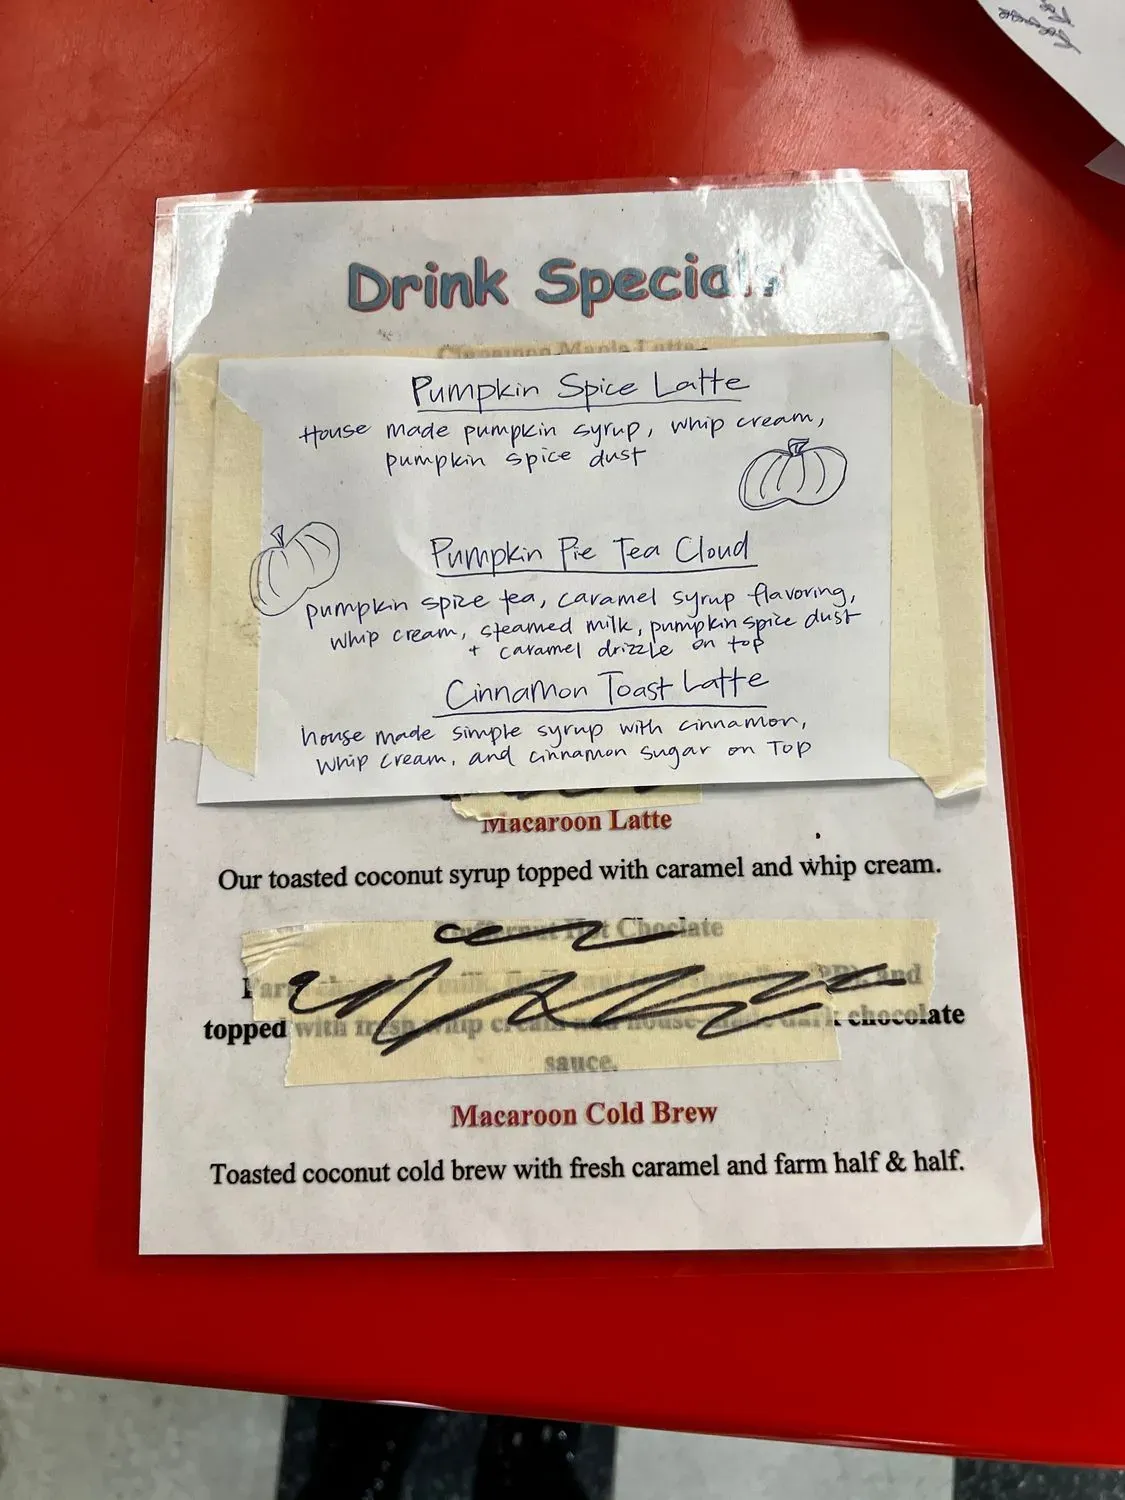 Drink Specials
Cinnamon Maple Latte
Pumpkin Spice Latte
House made pumpkin syrup, whip cream,
pumpkin spice dust
Pumpkin Pie Tea Cloud
pumpkin spice tea, caramel syrup flavoring,
whip cream, steamed milk, pumpkin spice dust
+ caramel drizzle on top
Cinnamon Toast Latte
house made simple syrup with cinnamon,
whip cream, and cinnamon sugar on Top
Macaroon Latte
Our toasted coconut syrup topped with caramel and whip cream.
Hot Choclate
milk, and
topped with fresh whip cream and house-made dark chocolate
sauce.
Macaroon Cold Brew
Toasted coconut cold brew with fresh caramel and farm half & half.